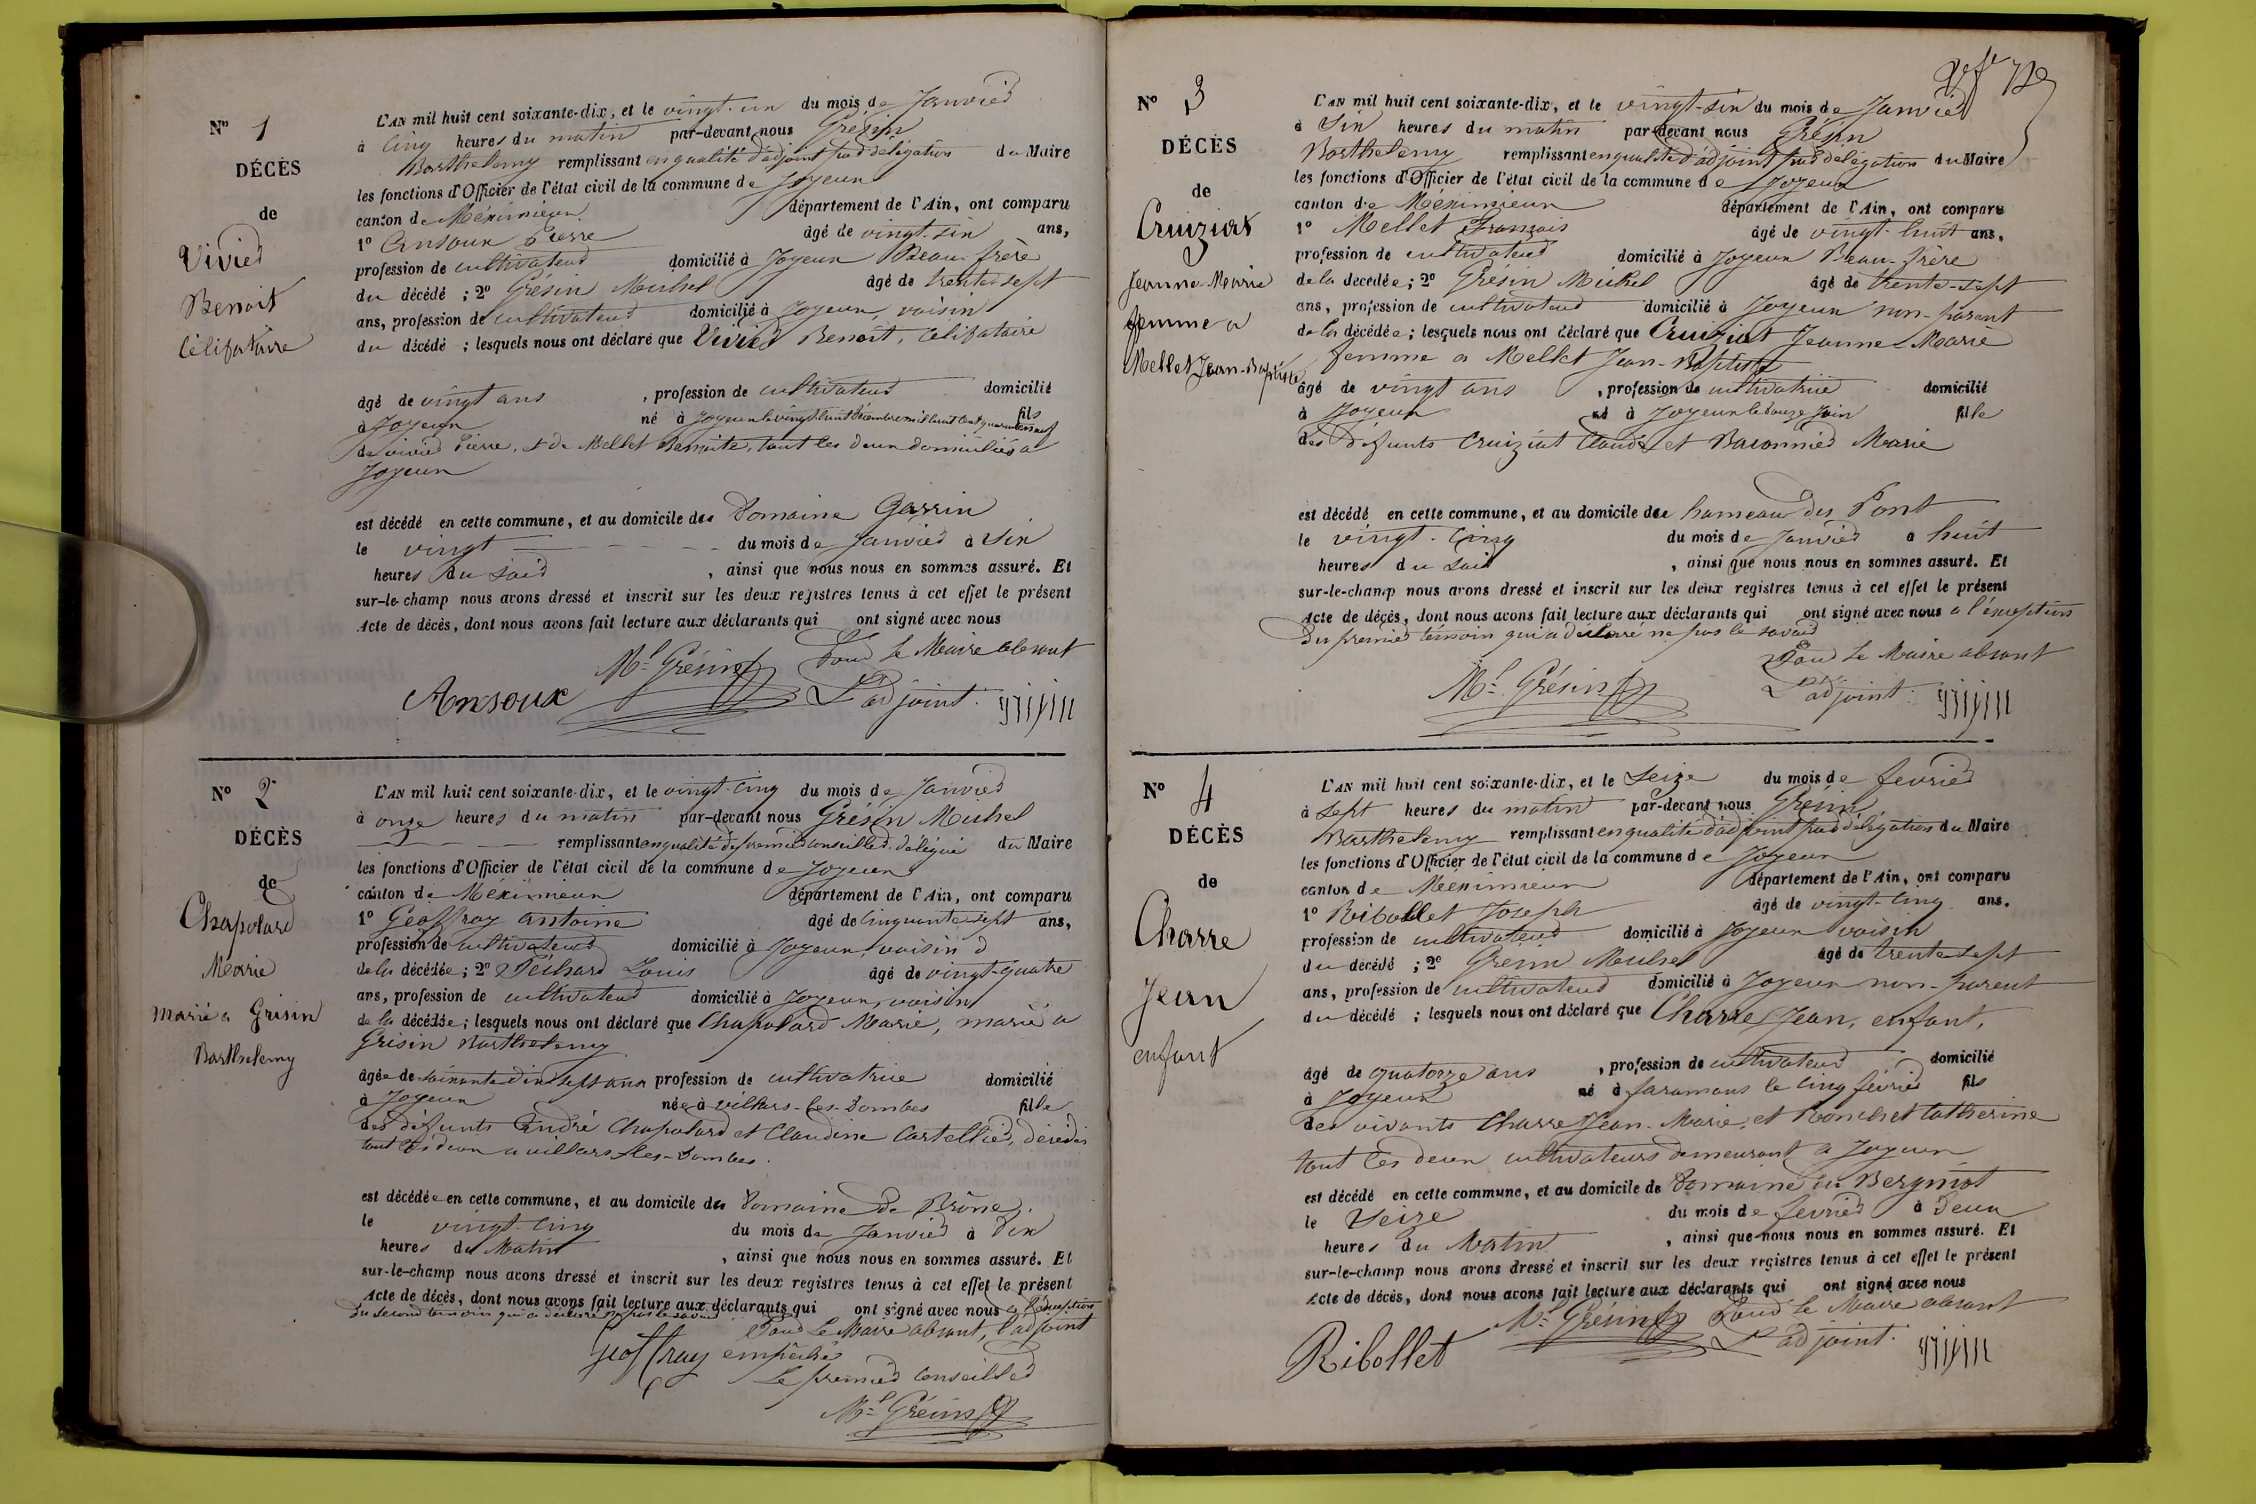 N° 1
DÉCÈS
de
Vivier
Benoit
Célibataire
L'AN mil huit cent soixante-dix, et le vingt-un du mois de Janvier
à cinq heures du matin par-devant nous Grésin
Barthelemy remplissant en qualité d'adjoint par délégation du Maire
les fonctions d'Officier de l'état civil de la commune de Joyeux
canton de Méximieux département de l'Ain, ont comparu
1° Ansoux Pierre âgé de vingt-six ans,
profession de cultivateur domicilié à Joyeux Beau-frère
du décédé ; 2° Grésin Michel âgé de trente-sept
ans, profession de cultivateur domicilié à Joyeux, voisin
du décédé ; lesquels nous ont déclaré que Vivier Benoit, Célibataire
âgé de vingt ans , profession de cultivateur domicilié
à Joyeux né à Joyeux le vingt-huit Décembre mil huit cent quarante neuf fils
de vivier Pierre, et de Mellet Benoite, tout les deux domiciliés a
Joyeux
est décédé en cette commune, et au domicile des Domaine Garrin
le vingt du mois de Janvier à Six
heures du Soir , ainsi que nous nous en sommes assuré. Et
sur-le-champ nous avons dressé et inscrit sur les deux registres tenus à cet effet le présent
Acte de décès, dont nous avons fait lecture aux déclarants qui ont signé avec nous
Ml Grésin Pour le Maire absent
Ansoux L'adjoint. grisin
N° 2
DÉCÈS
de
Chapolard
Marie
marié a Grisin
Barthelemy
L'AN mil huit cent soixante-dix, et le vingt-cinq du mois de Janvier
à onze heures du matin par-devant nous Grésin Michel
remplissant en qualité de premier conseiller délégué du Maire
les fonctions d'Officier de l'état civil de la commune de Joyeux
canton de Méximieux département de l'Ain, ont comparu
1° Geoffray antoine âgé de cinquante-sept ans,
profession de cultivateur domicilié à Joyeux, voisin d
de la décédée ; 2° Péchard Louis âgé de vingt-quatre
ans, profession de cultivateur domicilié à Joyeux, voisin
de la décédée ; lesquels nous ont déclaré que Chapolard Marie, marié a
Grisin Barthelemy
âgée de soixante-dix sept ans profession de cultivatrice domicilié
à Joyeux née à villars-les-Dombes fille
des défunts André Chapolard et Claudine Cartellier, décédés
tout les deux a villars-les-Dombes.
est décédée en cette commune, et au domicile des Domaine de Brône,
le vingt-cinq du mois de Janvier à Dix
heures du Matin , ainsi que nous nous en sommes assuré. Et
sur-le-champ nous avons dressé et inscrit sur les deux registres tenus à cet effet le présent
Acte de décès, dont nous avons fait lecture aux déclarants qui ont signé avec nous a l'exception
du second témoin qui a déclaré ne pas le savoir
Pour le Maire absent, l'adjoint
Geoffray empêché
Le premier conseiller
Ml Grésin
N° 3
DÉCÈS
de
Cruiziat
Jeanne-Marie
femme a
Mellet Jean-Baptiste
L'AN mil huit cent soixante-dix, et le vingt-six du mois de Janvier
à Six heures du matin par-devant nous Grésin
Barthelemy remplissant en qualité d'adjoint par délégation du Maire
les fonctions d'Officier de l'état civil de la commune de Joyeux
canton de Méximieux département de l'Ain, ont comparu
1° Mellet François âgé de vingt-huit ans,
profession de cultivateur domicilié à Joyeux Beau-frère
de la décédée ; 2° Grésin Michel âgé de trente-sept
ans, profession de cultivateur domicilié à Joyeux non-parent
de la décédée ; lesquels nous ont déclaré que Cruiziat Jeanne-Marie
femme a Mellet Jean-Baptiste
âgé de vingt ans , profession de cultivatrice domicilié
à Joyeux né à Joyeux le douze Juin fille
des Défunts Cruiziat Claude et Baronnier Marie
est décédé en cette commune, et au domicile des hameau des Pont
le vingt-cinq du mois de Janvier a huit
heures du Soir , ainsi que nous nous en sommes assuré. Et
sur-le-champ nous avons dressé et inscrit sur les deux registres tenus à cet effet le présent
Acte de décès, dont nous avons fait lecture aux déclarants qui ont signé avec nous a l'exception
du premier témoin qui a déclaré ne pas le savoir
Pour le Maire absent
Ml Grésin L'adjoint. grisin
N° 4
DÉCÈS
de
Charre
Jean
enfant
L'AN mil huit cent soixante-dix, et le Seize du mois de fevrier
à Sept heures du matin par-devant nous Grésin
Barthelemy remplissant en qualité d'adjoint par délégation du Maire
les fonctions d'Officier de l'état civil de la commune de Joyeux
canton de Méximieux département de l'Ain, ont comparu
1° Ribollet Joseph âgé de vingt-cinq ans,
profession de cultivateur domicilié à Joyeux voisin
du décédé ; 2° Grésin Michel âgé de trente-sept
ans, profession de cultivateur domicilié à Joyeux non-parent
du décédé ; lesquels nous ont déclaré que Charre Jean, enfant,
âgé de quatorze ans , profession de cultivateur domicilié
à Joyeux né à faramans le cinq février fils
des vivants Charre Jean-Marie, et Ronchet Catherine
tout les deux cultivateurs demeurant a Joyeux
est décédé en cette commune, et au domicile de Domaine du Bergniot
le Seize du mois de fevrier à Deux
heures du Matin , ainsi que nous nous en sommes assuré. Et
sur-le-champ nous avons dressé et inscrit sur les deux registres tenus à cet effet le présent
Acte de décès, dont nous avons fait lecture aux déclarants qui ont signé avec nous
Ml Grésin Pour le Maire absent
Ribollet L'adjoint. grisin